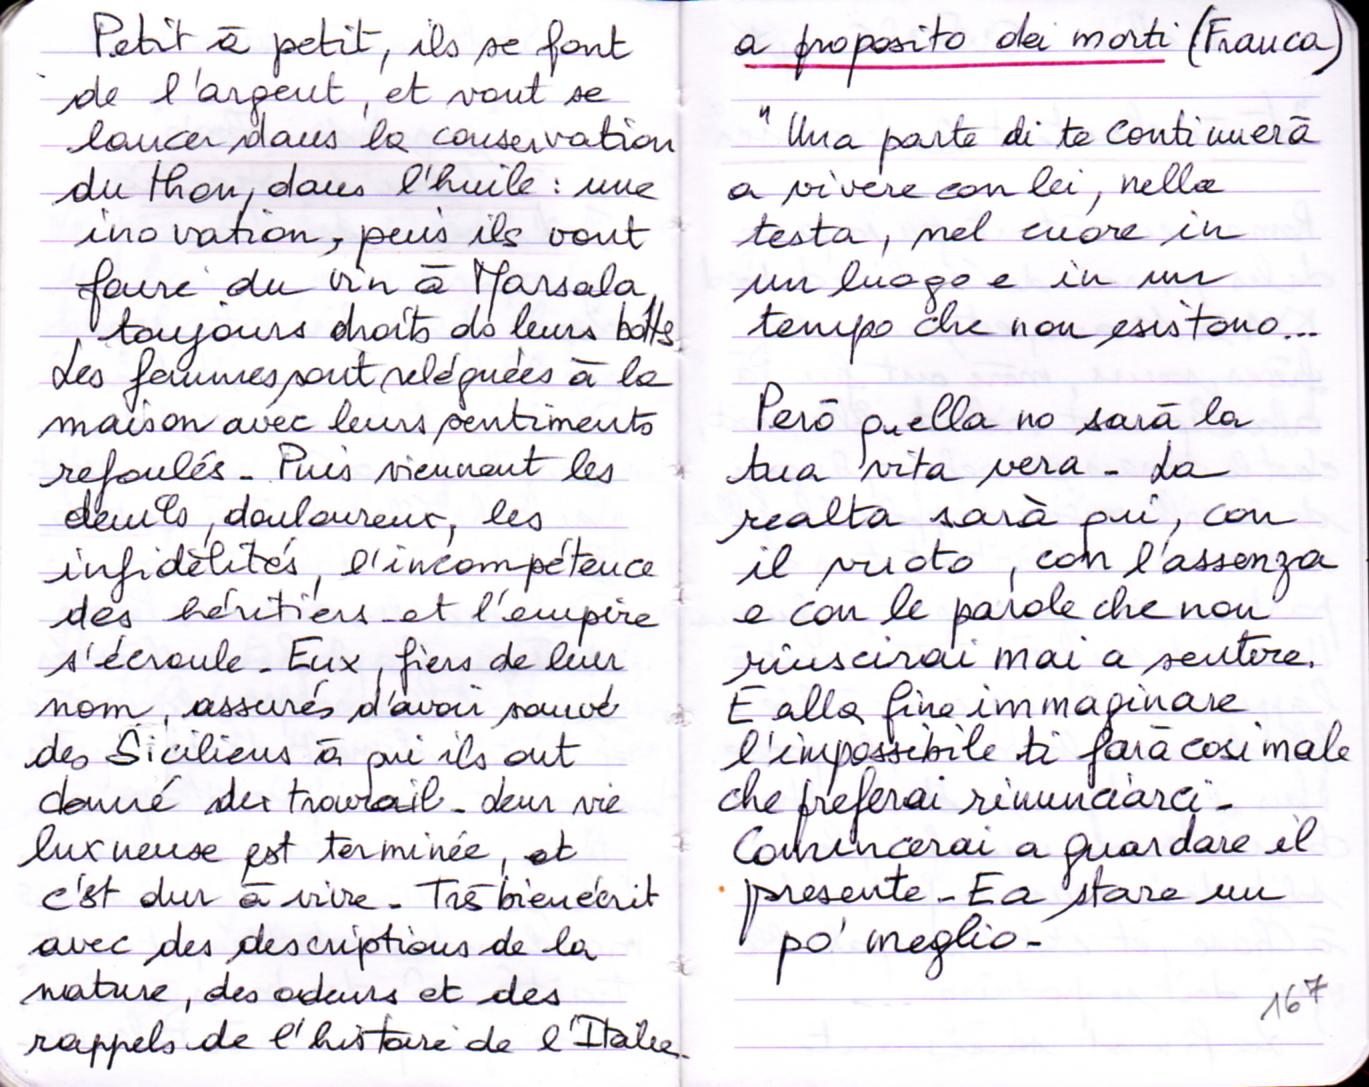 Petit à petit, ils se font
de l'argent, et vont se
lancer dans la conservation
du thon, dans l'huile : une
inovation, puis ils vont
faire du vin à Marsala,
toujours droits ds leurs bottes.
Les femmes sont reléguées à la
maison avec leurs sentiments
refoulés - Puis viennent les
deuils, douloureux, les
infidélités, l'incompétence
des héritiers - et l'empire
s'écroule - Eux fiers de leur
nom, assurés d'avoir sauvé
des Siciliens à qui ils ont
donné du travail - Leur vie
luxueuse est terminée, et
c'est dur à vivre - Très bien écrit
avec des descriptions de la
nature, des odeurs et des
rappels de l'histoire de l'Italie -
a proposito dei morti (Franca)
" Una parte di te continuerà
a vivere con lei, nella
testa, nel cuore in
un luogo e in un
tempo che non esistono...
Però quella no sarà la
tua vita vera - La
realta sarà qui, con
il vuoto, con l'assenza
e con le parole che non
riuscirai mai a sentire.
E alla fine immaginare
l'impossibile ti farà cosi male
che preferai rinunciarci -
Comincerai a guardare il
presente - E a stare un
po' meglio -
167